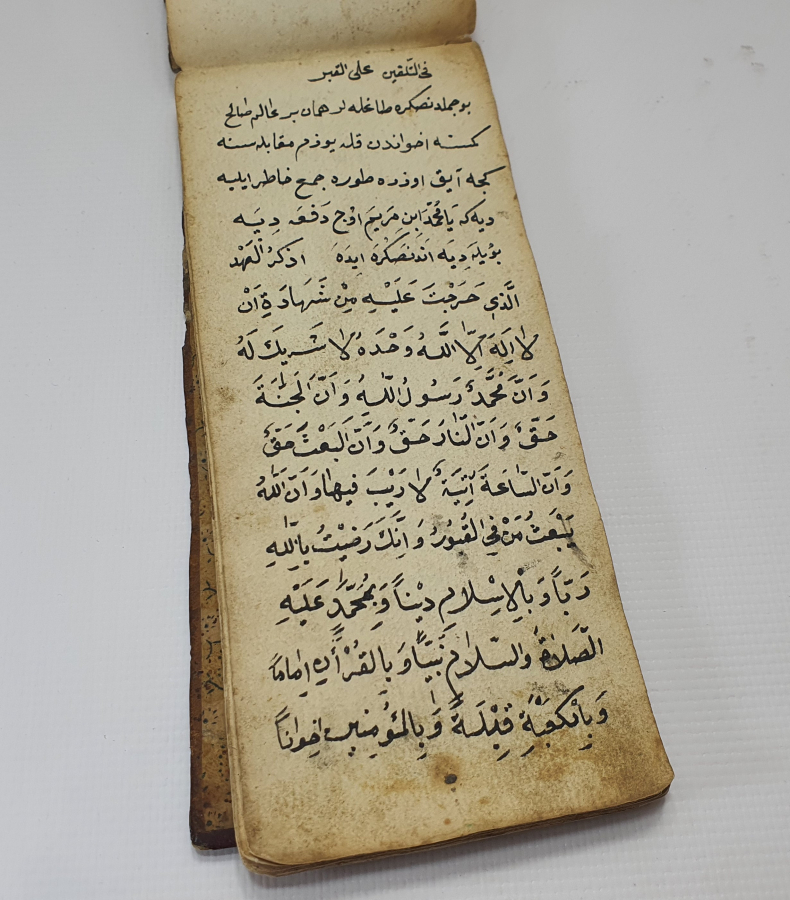 فى التلقين على القبر
بو جمله نصكره طاغله لر همان بر عالم صالح
كمسنه اخواندن قله يوزم مقابله سنه
كجه آيق اوذره طوره جمع خاطر ايليه
ديه كه يَا مُحَمَّدْ اِبنِ مَريَمَ اوُج دَفعَه دِيَه
بُويلَه دِيَه اَندنصَكرَه ايدَه اذكرُ العَهْد
الَّذي حَرَجْتَ عَلَيْهِ مِنْ شَهادَةِ اَنْ
لا اِلَهَ اِلاَّ اللَّهُ وَحْدَهُ لا شَريكَ لَهُ
وَ اَنَّ مُحَمَّدً رَسُولُ اللَّهِ وَ اَنَّ الجَنَّةَ
حَقٌّ وَ اَنَّ النَّارَ حَقٌّ وَ اَنَّ البَعْثَ حَقٌّ
وَ اَنَّ السَّاعَةَ آتِيَةٌ لا رَيْبَ فيها وَ اَنَّ اللَّهَ
يَبْعَثُ مَنْ فِي القُبُورُ وَ اَنَّكَ رَضيْتُ بِاللَّهِ
رَبّاً وَ بِالاِسْلامِ ديْناً وَ بِمُحَمَّدٍ عَلَيْهِ
الصَّلاةُ والسَّلامِ نَبِيّاً وَ بِالقُرْأَنِ اِماماً
وَ بِالكَعْبَةِ قِبْلَةً وَ بِالمُؤمِنينَ اخِواناً